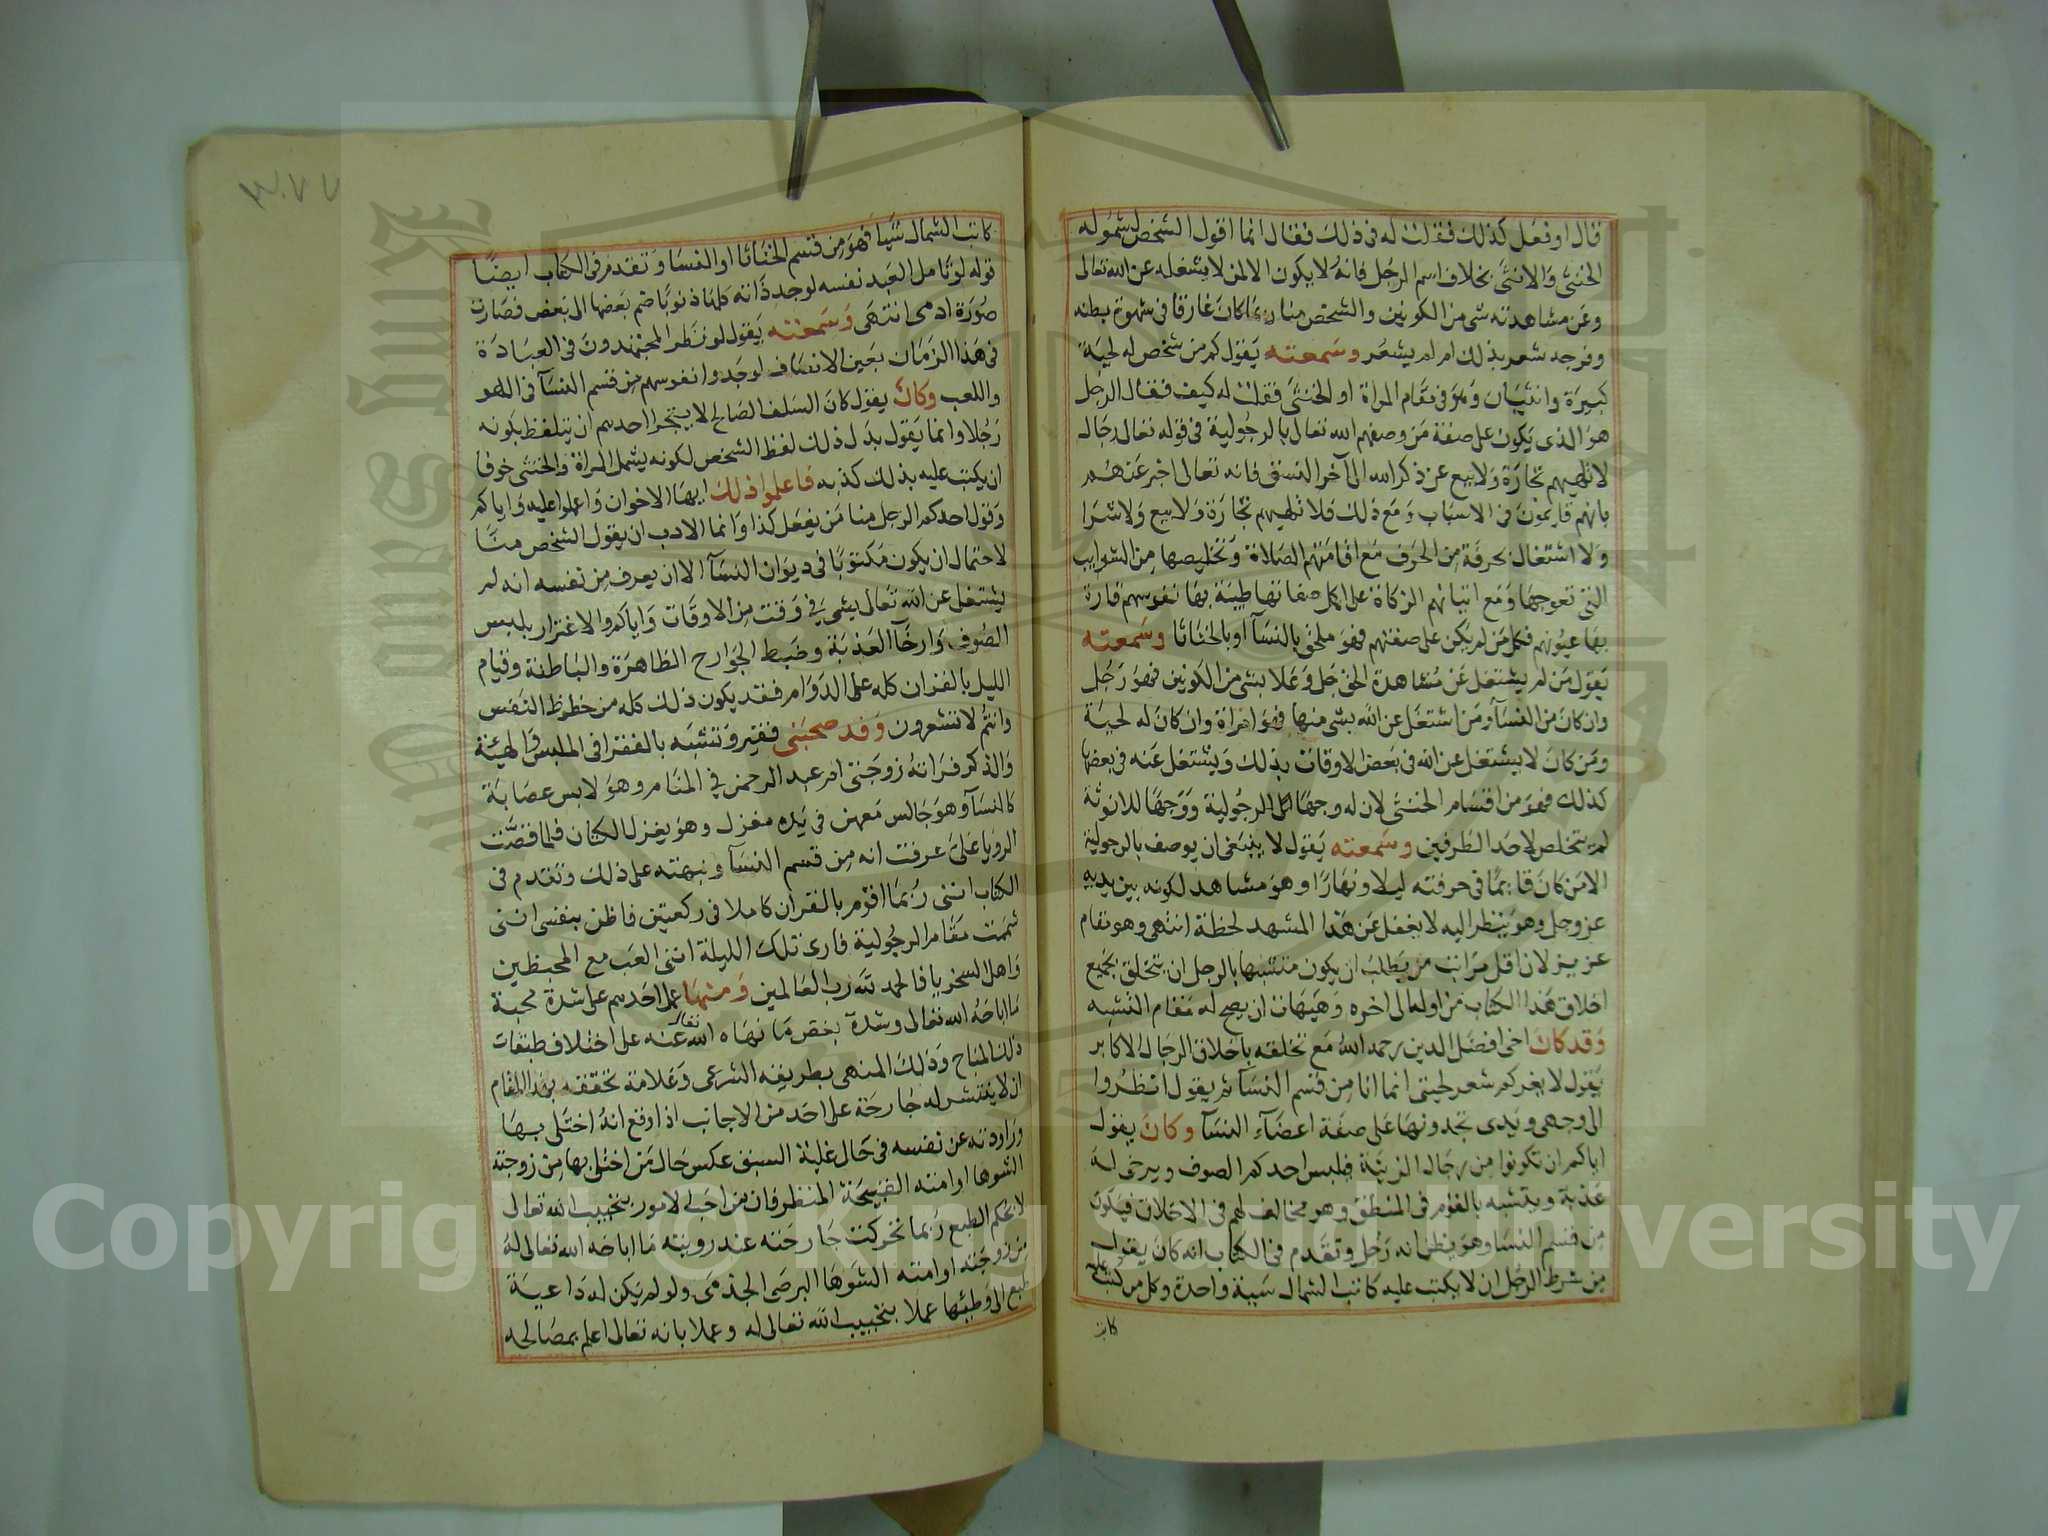 قال او فعل كذلك فقلت له فى ذلك فقال انما اقول الشخص لشموله
الخنثى والانثى بخلاف اسم الرجل فانه لا يكون الا لمن لا يشغله عن الله تعالى
وعن مشاهدته شى من الكونين والشخص منا ربما كان غارقا فى شهوة بطنه
وفرجه شعر بذلك ام لم يشعر وسمعته يقول كم من شخص له لحية
كبيرة وانثيان وهو فى مقام المراة او الخنثى فقلت له كيف فقال الرجل
هو الذى يكون على صفة من وصفهم الله تعالى بالرجولية فى قوله تعالى رجال
لا تلهيهم تجارة ولا بيع عن ذكر الله الى آخر النسق فانه تعالى اخبر عنهم
بانهم قايمون فى الاسباب ومع ذلك فلا تلهيهم تجارة ولا بيع ولا شرا
ولا اشتغال بحرفة من الحرف مع اقامتهم الصلاة وتخليصها من الشوايب
التى تعوجها ومع اتيانهم الزكاة على اكمل صفاتها طيبة بها نفوسهم قارة
بها عيونهم فكل من لم يكن على صفتهم فهو ملحق بالنسآ او بالخناثا وسمعته
يقول من لم يشتغل عن مشاهدة الحق جل وعلا بشى من الكونين فهو رجل
وان كان من النسآ ومن اشتغل عن الله بشى منها فهو امراة وان كان له لحية
ومن كان لا يشتغل عن الله فى بعض الاوقات بذلك ويشتغل عنه فى بعضها
كذلك فهو من اقسام الخنثى لان له وجها الى الرجولية ووجها للانوثة
لم يتخلص لاحد الطرفين وسمعته يقول لا ينبغى ان يوصف بالرجولية
الا من كان قايما فى حرفته ليلا ونهارا وهو مشاهد لكونه بين يديه
عز وجل وهو ينظر اليه لا يغفل عن هذا المشهد لحظة انتهى وهو مقام
عزيز لان اقل مراتب من يطلب ان يكون متشبها بالرجل ان يتخلق بجميع
اخلاق هذا الكتاب من اوله الى اخره وهيهات ان يصح له مقام التشبه
وقد كان اخى افضل الدين رحمه الله مع تخلقه باخلاق الرجال الاكابر
يقول لا يغركم شعر لحيتى انما انا من قسم النسآ ثم يقول انظروا
الى وجهى ويدى تجدونها على صفة اعضآء النسآ وكان يقول
اياكم ان تكونوا من رجال الزينة فيلبس احدكم الصوف ويرخى له
عذبة ويتشبه بالقوم فى المنطق وهو مخالف لهم فى الاخلاق فيكون
من قسم النسا وهو يظن انه رجل وتقدم فى الكتاب انه كان يقول
من شرط الرجل ان لا يكتب عليه كاتب الشمال سيية واحدة وكل من كتب عليه
كاتب
٣٠٧٧
كاتب الشمال شيا فهو من قسم الخناثا او النسا وتقدم فى الكتاب ايضا
قوله لو تامل العبد نفسه لوجد ذاته كلها ذنوبا ضم بعضها الى بعض فصارت
صورة ادمى انتهى وسمعته يقول لو نظر المجتهدون فى العبادة
فى هذا الزمان بعين الانصاف لوجدوا نفوسهم من قسم النسآ فى اللهو
واللعب وكان يقول كان السلف الصالح لا يتجرا احدهم ان يتلفظ بكونه
رجلا وانما يقول بدل ذلك لفظ الشخص لكونه يشمل المراة والخنثى خوفا
ان يكتب عليه بذلك كذبه فاعلموا ذلك ايها الاخوان واعملوا عليه واياكم
وقول احدكم الرجل منا من يفعل كذا وانما الادب ان يقول الشخص منا
لاحتمال ان يكون مكتوبا فى ديوان النسآ الا ان يعرف من نفسه انه لم
يشتغل عن الله تعالى بشى فى وقت من الاوقات واياكم والاغترار بلبس
الصوف وارخآ العذبة وضبط الجوارح الظاهرة والباطنة وقيام
الليل بالقران كله على الدوام فقد يكون ذلك كله من حظوظ النفس
وانتم لا تشعرون وقد صحبنى فقير وتشبه بالفقرا فى الملبس والهيئة
والذكر فراته زوجتى ام عبد الرحمن فى المنام وهو لابس عصابة
كالنسآ وهو جالس معهن فى يده مغزل وهو يغزل الكتان فلما قصت
الرويا على عرفت انه من قسم النسآ ونبهته على ذلك وتقدم فى
الكتاب اننى ربما اقوم بالقران كاملا فى ركعتين فاظن بنفسى اننى
شممت مقام الرجولية فارى تلك الليلة اننى العب مع المحبظين
واهل السخريا فالحمد لله رب العالمين ومنها عمل احدهم على شدة محبة
ما اباحه الله تعالى وشدة بغض ما نهاه الله تعالى عنه على اختلاف طبقات
ذلك المباح وذلك المنهى بطريقه الشرعى وعلامة تحققه بهذا المقام
ان لا ينتشر له جارحة على احد من الاجانب اذا وقع انه اختلى بها
وراودته عن نفسه فى حال غلبة السبق عكس حال من اختلى بها من زوجته
الشوها او امته القبيحة المنظر فان من احب الامور بتحبيب الله تعالى
لا بحكم الطبع ربما تحركت جارحته عند رويته ما اباحه الله تعالى له
من زوجته او امته الشوها البرصى الجذمى ولو لم يكن له داعية
طبع الى وطئها عملا بتحبيب الله تعالى له وعملا بانه تعالى اعلم بمصالحه
King Saud University
Copyright © King Saud University